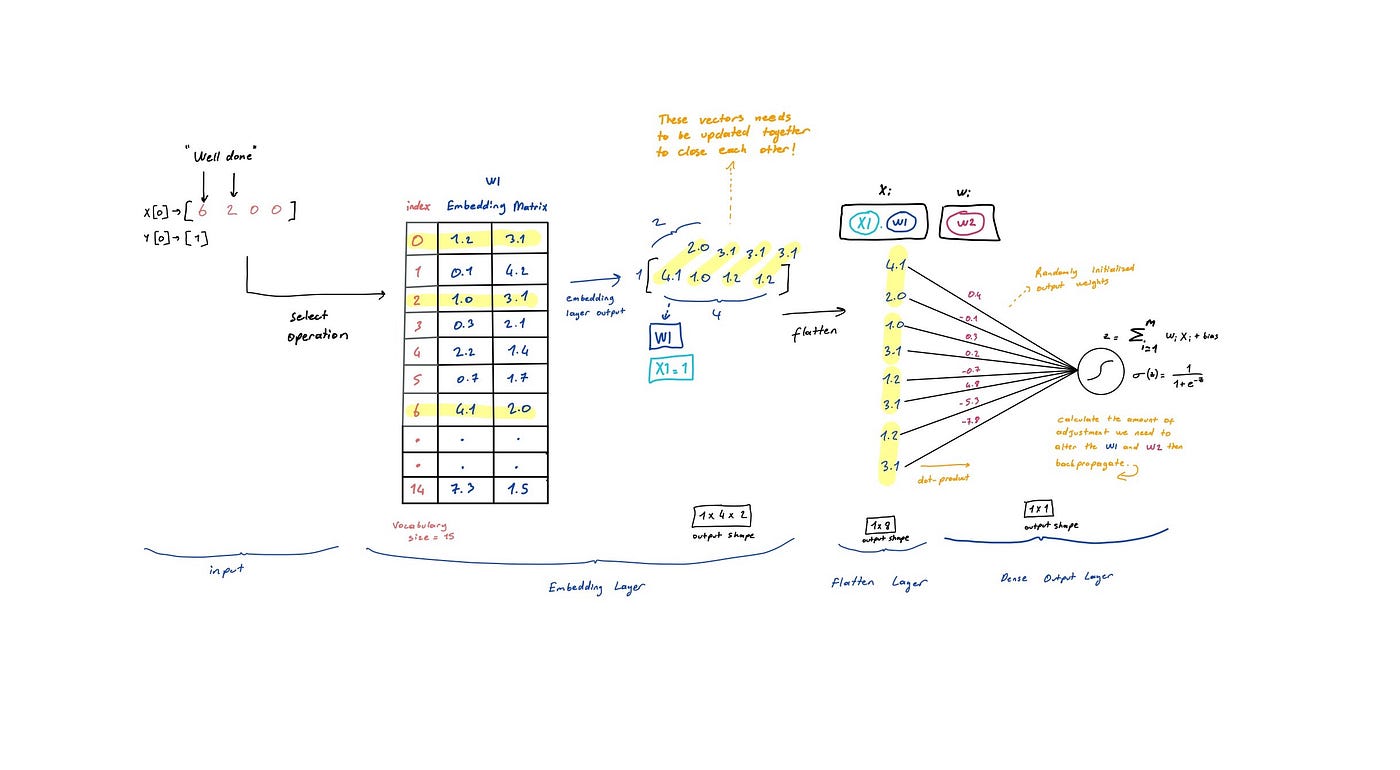 "Well done"
X[0]→[ 6 2 0 0 ]
Y[0]→[1]
select
operation
input
W1
index Embedding Matrix
0 1.2 3.1
1 0.1 4.2
2 1.0 3.1
3 0.3 2.1
4 2.2 1.4
5 0.7 1.7
6 4.1 2.0
. . .
. . .
14 7.3 1.5
Vocabulary
size = 15
embedding
layer output
These vectors needs
to be updated together
to close each otter!
2
2.0 3.1 3.1 3.1
1 [ 4.1 1.0 1.2 1.2 ]
4
W1
X1=1
1x4x2
output shape
Embedding Layer
flatten
Xi wi
X1 . W1 W2
4.1
2.0
1.0
3.1
1.2
3.1
1.2
3.1
0.4
-0.1
0.3
0.2
-0.7
-5.3
dot-product
1x8
output shape
Flatten Layer
Randomly initialized
output weights
z = Σ i=1 M wi Xi + bias
σ(z) = 1 / 1+e^-z
calculate the amount of
adjustment we need to
alter the W1 and W2 then
backpropagate.
1x1
output shape
Dense Output Layer